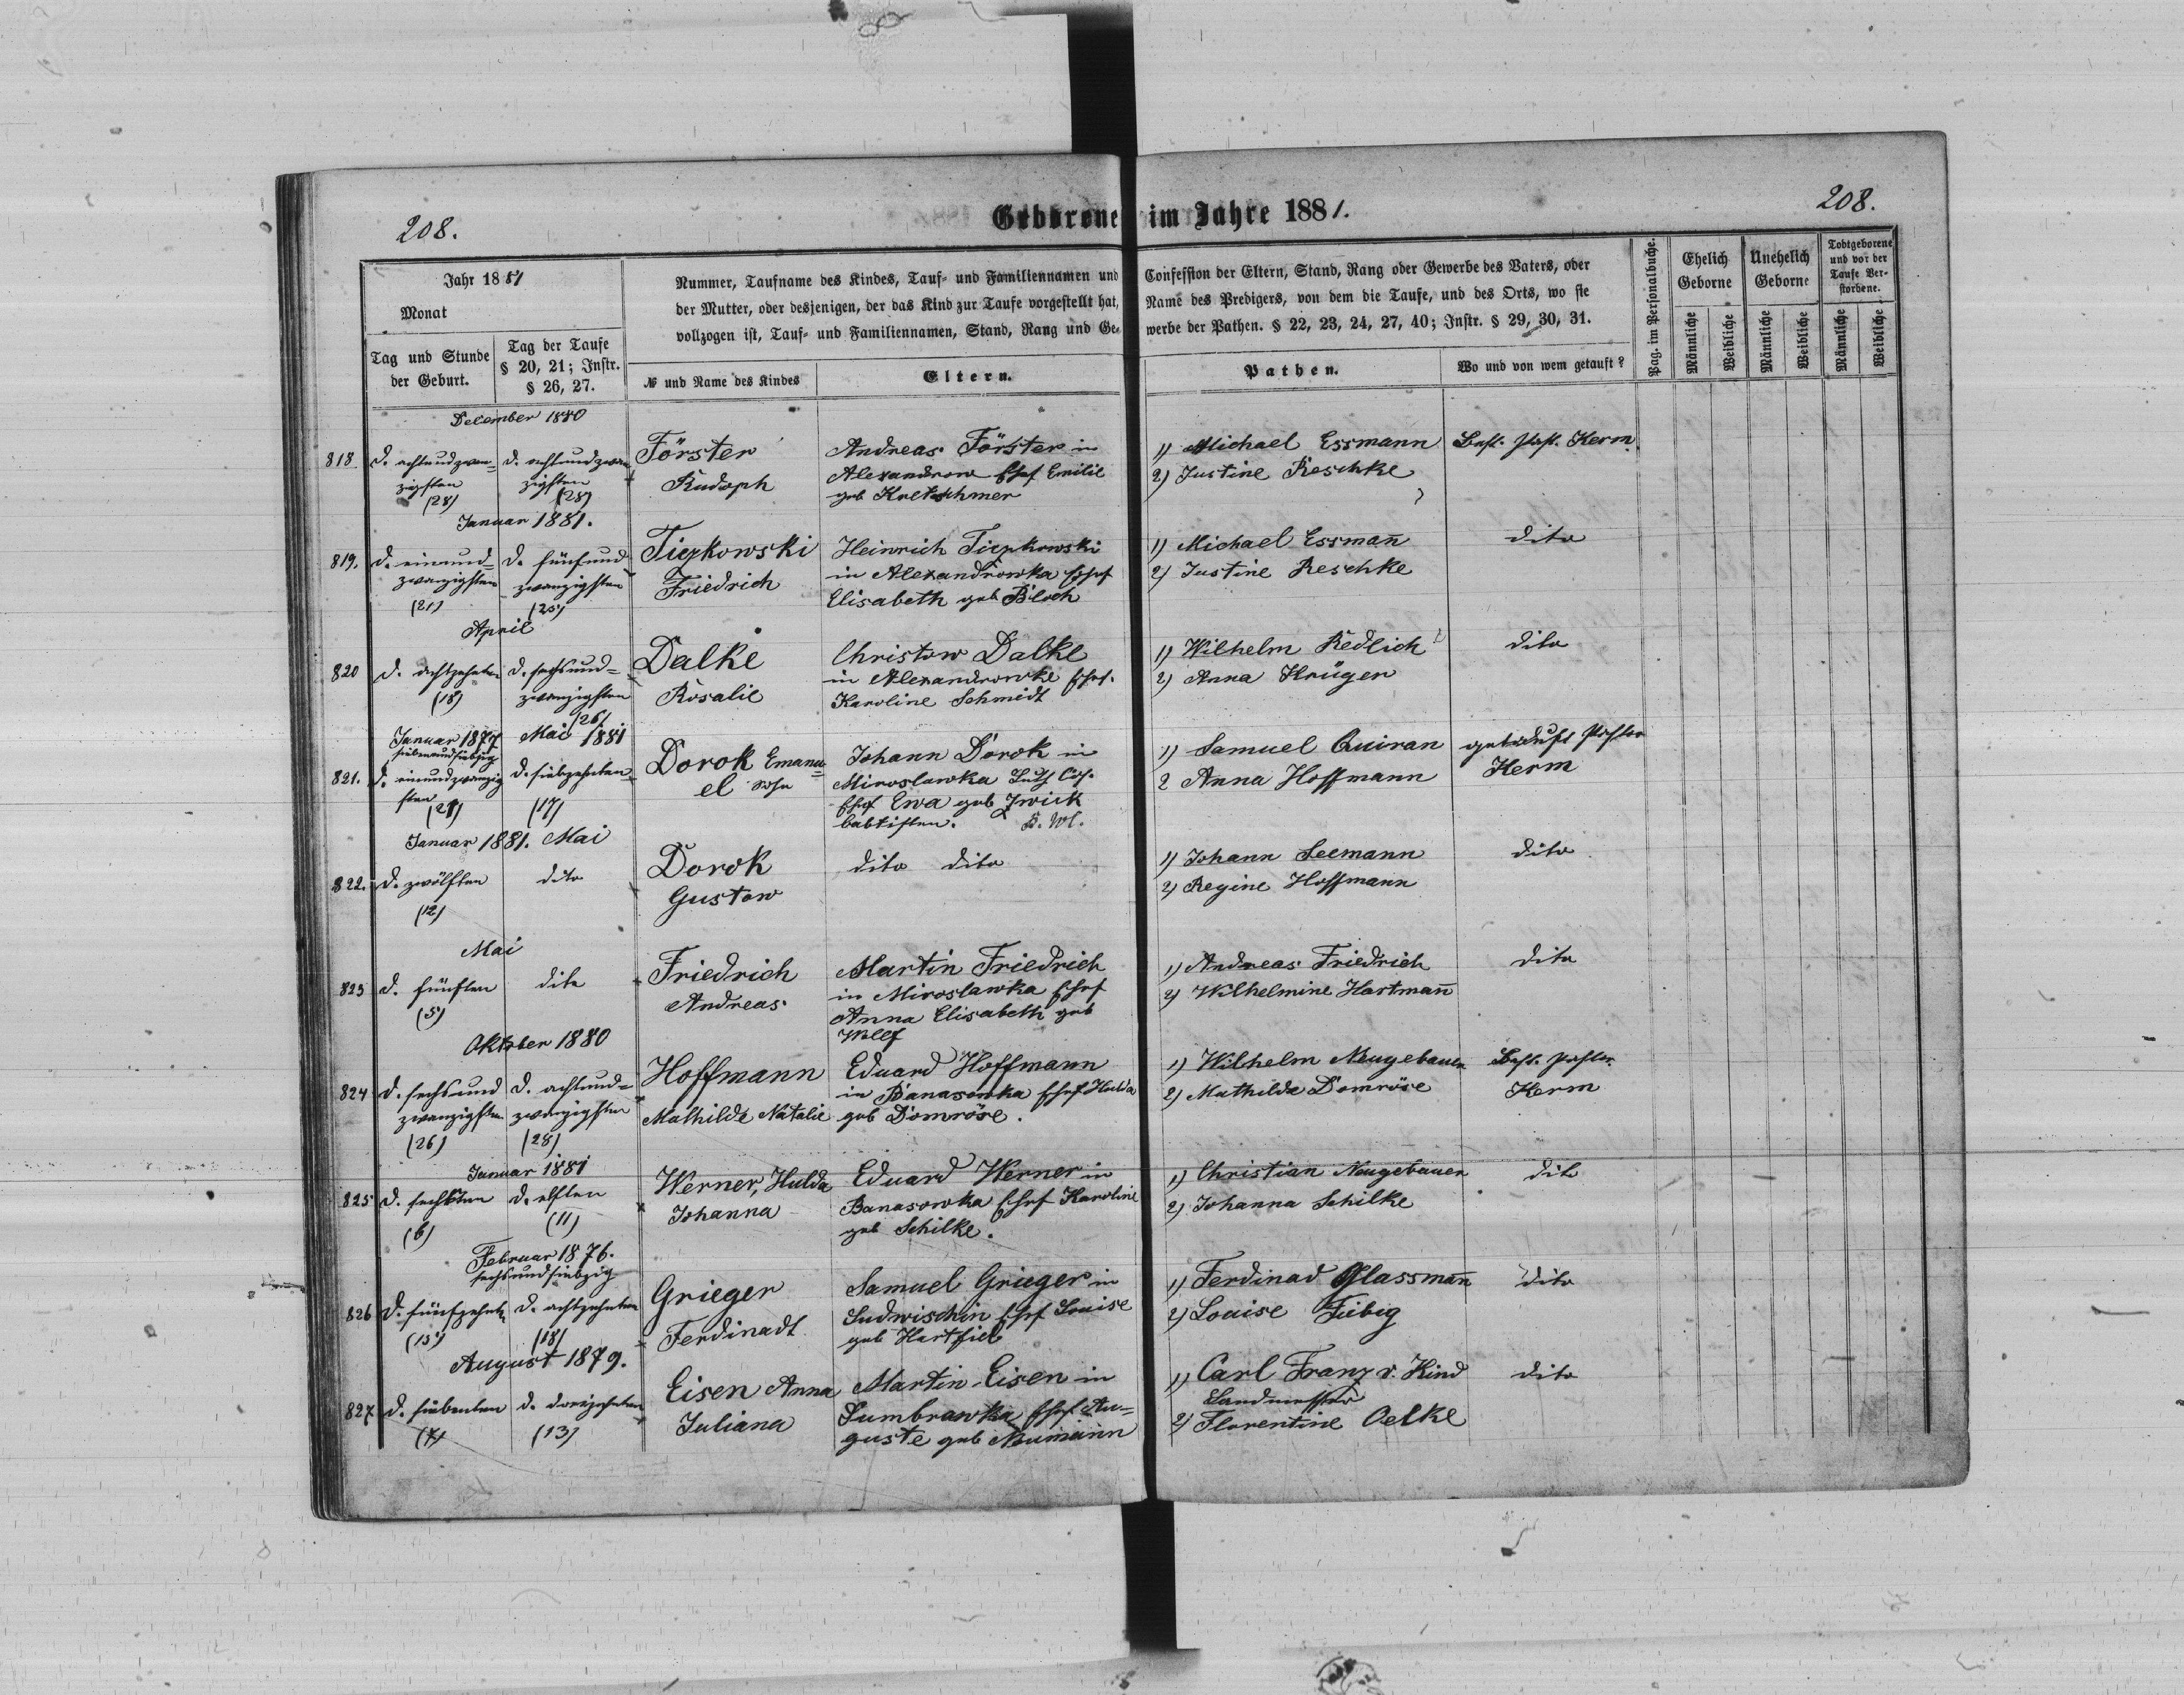 208.
Geborene im Jahre 1881.
208.
Jahr 1881
Monat
Tag und Stunde der Geburt.
Tag der Taufe § 20, 21; Instr. § 26, 27.
Nummer, Taufname des Kindes, Tauf- und Familiennamen und
der Mutter, oder desjenigen, der das Kind zur Taufe vorgestellt hat,
vollzogen ist, Tauf- und Familiennamen, Stand, Rang und Ge-
№ und Name des Kindes
Eltern.
Confession der Eltern, Stand, Rang oder Gewerbe des Vaters, oder
Name des Predigers, von dem die Taufe, und des Orts, wo sie
werbe der Pathen. § 22, 23, 24, 27, 40; Instr. § 29, 30, 31.
Pathen.
Wo und von wem getauft?
Pag. im Personalbuche.
Ehelich Geborne
Unehelich Geborne
Todtgeborene und vor der Taufe Verstorbene.
Männliche
Weibliche
Männliche
Weibliche
Männliche
Weibliche
December 1880
818.
d. achtundzwan-
zigsten
(28)
d. achtundzwan
zigsten
(28)
Förster
Rudoph
Andreas Förster in
Alexandrow Ehef Emilie
geb Kretschmer
1) Michael Essmann
2) Justine Reschke
Best. Past. Kerm.
Januar 1881.
819.
d. einund-
zwanzigsten
(21)
d. fünfund-
zwanzigsten
(25)
Tiezkowski
Friedrich
Heinrich Tiezkowski
in Alexandrowka Ehef
Elisabeth geb Bloch
1) Michael Essmañ
2) Justine Reschke
dito
April
820
d. achtzehnten
(18)
d. sechsund-
zwanzigsten
(26)
Dalke
Rosalie
Christow Dalke
in Alexandrowke Ehef.
Karoline Schmidt
1) Wilhelm Redlich
2) Anna Krüger
dito
Januar 1877
siebenundsiebzig
Mai 1881
821.
d. einundzwanzig
sten
(21)
d. siebzehnten
(17)
Dorok Emanu-
el
Johann Dorok in
Miroslawka
Ehef Ewa geb Zwick
babtisten.
1) Samuel Quiran
2 Anna Hoffmann
getauft Pastor
Kerm
Januar 1881. Mai
822.
d. zwölften
(12)
dito
Dorok
Gustow
dito dito
1) Johann Seemann
2) Regine Hoffmann
dito
Mai
823
d. fünften
(5)
dito
Friedrich
Andreas
Martin Friedrich
in Miroslawka Ehef
Anna Elisabeth geb
Wolf
1) Andreas Friedrich
2) Wilhelmine Hartmañ
dito
Oktober 1880
824
d. sechsund
zwanzigsten
(26)
d. achtund-
zwanzigsten
(28)
Hoffmann
Mathilde Natalie
Eduard Hoffmann
in Banasowka Ehef Hulda
geb Domröse.
1) Wilhelm Neugebauer
2) Mathilde Domröse
Best. Pastor.
Kerm
Januar 1881
825
d. sechsten
(6)
d. elften
(11)
Werner, Hulda
Johanna
Eduard Werner in
Banasowka Ehef Karoline
geb Schilke.
1) Christian Neugebauer
2) Johanna Schilke
dito
Februar 1876.
sechsundsiebzig
826
d. fünfzehnten
(15)
d. achtzehnten
(18)
Grieger
Ferdinadt
Samuel Grieger in
Ludwischin Ehef Louise
geb Hartfiel
1) Ferdinad Glassmañ
2) Louise Fiebig
dito
August 1879.
827
d. siebenten
(7)
d. dreizehnten
(13)
Eisen Anna
Juliana
Martin Eisen in
Dumbrawka Ehef Au-
guste geb Neumann
1) Carl Franz v. Kind
Landmesser
2) Florentine Oelke
dito